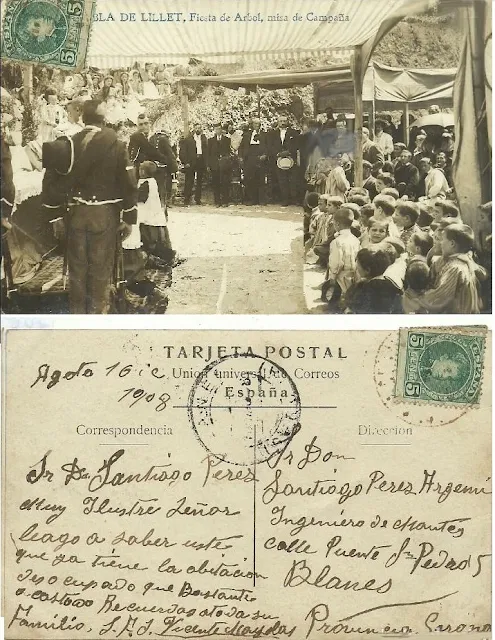 5 5
BLA DE LILLET, Fiesta de Arbol, misa de Campaña
TARJETA POSTAL
Union universal de Correos
España
Agoto 16
1908
5 5
Correspondencia
Dirección
Sr Dn Santiago Perez
Muy Ilustre Señor
hago a saber uste
que ya tiene la abitacion
desocupado que Bastante
a costado Recuerdos atoda su
Familia, S.S.S. Vicente
Sr Don
Santiago Perez Argemi
Ingeniero de Montes
calle Puente Sn Pedro 5
Blanes
Provincia Gerona